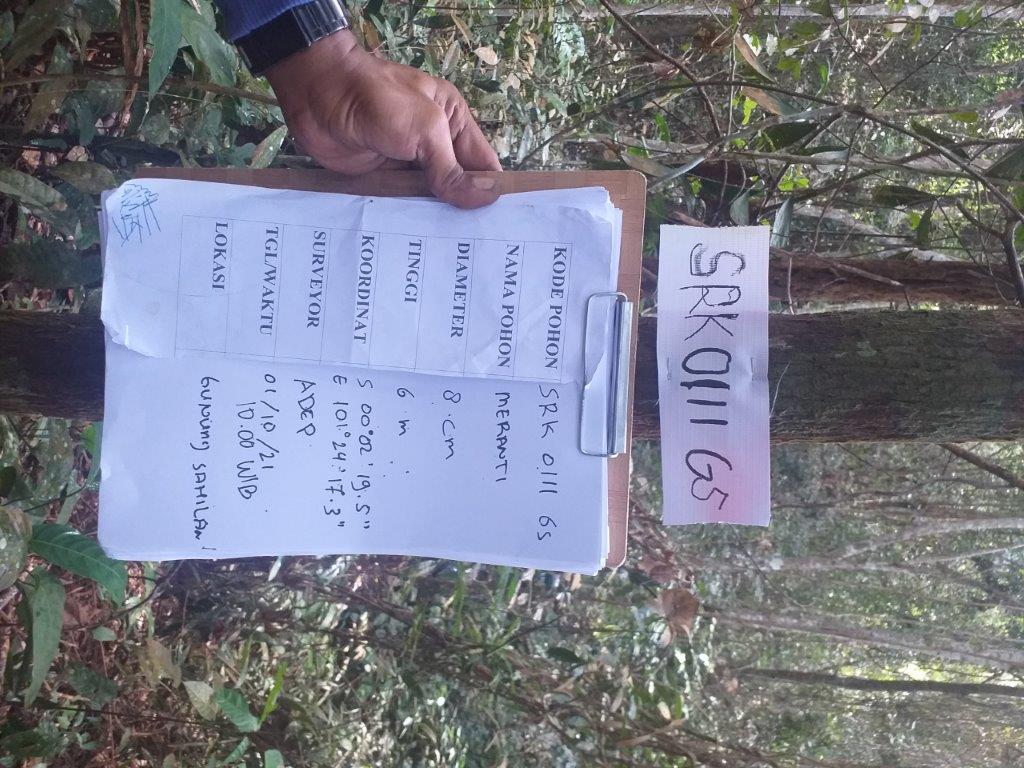 SRK 0111 GS
KODE POHON SRK 0111 GS
NAMA POHON MERANTI
DIAMETER 8 cm
TINGGI 6 m
KOORDINAT S 00°02'19.5"
E 101°24'17.3"
SURVEYOR ADEP
TGL/WAKTU 01/10/21
10.00 WIB
LOKASI GUNUNG SAHILAN